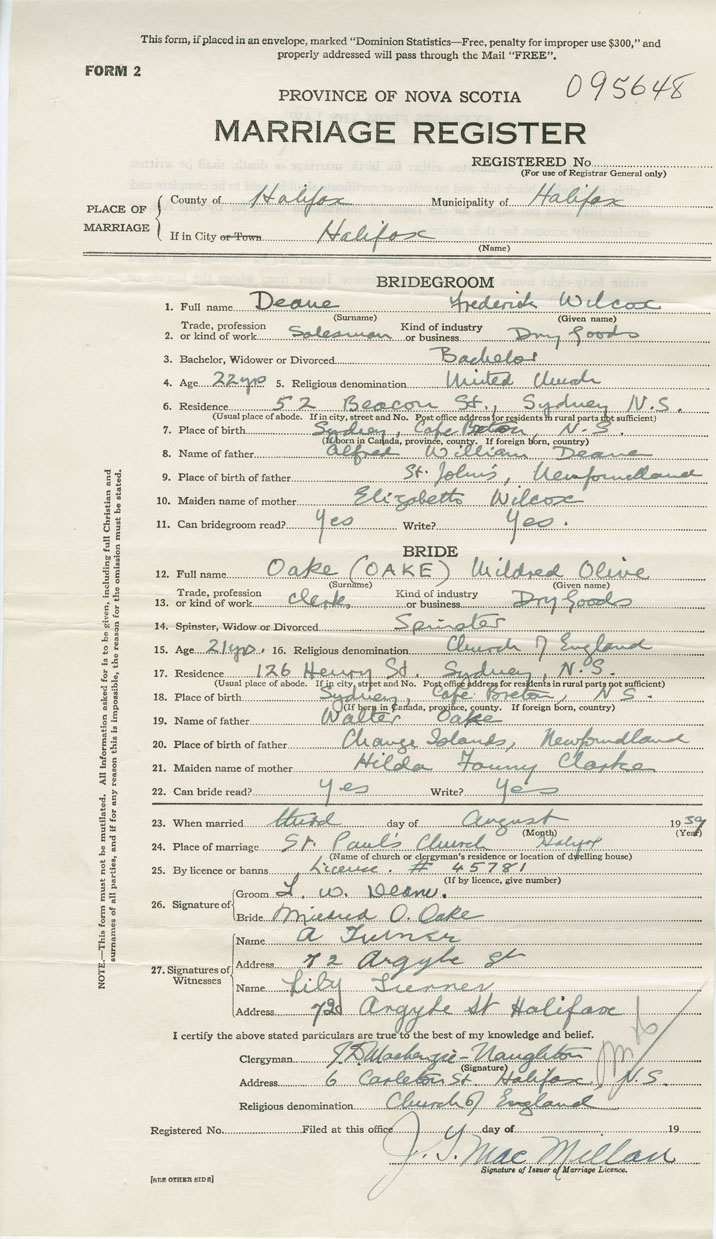 This form, if placed in an envelope, marked "Dominion Statistics—Free, penalty for improper use $300," and
properly addressed will pass through the Mail "FREE".
FORM 2
095648
PROVINCE OF NOVA SCOTIA
MARRIAGE REGISTER
REGISTERED No.
(For use of Registrar General only)
PLACE OF MARRIAGE
County of Halifax Municipality of Halifax
If in City or Town Halifax
(Name)
BRIDEGROOM
1. Full name Deane Frederick Wilcox
(Surname) (Given name)
2. Trade, profession or kind of work Salesman Kind of industry or business Dry Goods
3. Bachelor, Widower or Divorced Bachelor
4. Age 22 yrs 5. Religious denomination United Church
6. Residence 52 Beacon St., Sydney N.S.
(Usual place of abode. If in city, street and No. Post office address for residents in rural parts not sufficient)
7. Place of birth Sydney, Cape Breton, N.S.
(If born in Canada, province, county. If foreign born, country)
8. Name of father Alfred William Deane
9. Place of birth of father St. John's, Newfoundland
10. Maiden name of mother Elizabeth Wilcox
11. Can bridegroom read? Yes Write? Yes.
BRIDE
12. Full name Oake (OAKE) Mildred Olive
(Surname) (Given name)
13. Trade, profession or kind of work Clerk Kind of industry or business Dry Goods
14. Spinster, Widow or Divorced Spinster
15. Age 21 yrs. 16. Religious denomination Church of England
17. Residence 126 Henry St. Sydney, N.S.
(Usual place of abode. If in city, street and No. Post office address for residents in rural parts not sufficient)
18. Place of birth Sydney, Cape Breton, N S.
(If born in Canada, province, county. If foreign born, country)
19. Name of father Walter Oake
20. Place of birth of father Change Islands, Newfoundland
21. Maiden name of mother Hilda Fanny Clarke
22. Can bride read? Yes Write? Yes
23. When married third day of August 1939
(Month) (Year)
24. Place of marriage St. Paul's Church Halifax
(Name of church or clergyman's residence or location of dwelling house)
25. By licence or banns License. # 45781
(If by licence, give number)
26. Signature of
Groom F. W. Deane.
Bride Mildred O. Oake
27. Signatures of Witnesses
Name A Turner
Address 72 Argyle St
Name Lily Turner
Address 72 Argyle St Halifax
I certify the above stated particulars are true to the best of my knowledge and belief.
Clergyman Mackenzie-Naughton
(Signature)
Address 6 Carleton St. Halifax, N.S.
Religious denomination Church of England
Registered No. Filed at this office day of 19
J. Mac Millan
Signature of Issuer of Marriage Licence.
[SEE OTHER SIDE]
NOTE.—This form must not be mutilated. All information asked for is to be given, including full Christian and
surnames of all parties, and if for any reason this is impossible, the reason for the omission must be stated.